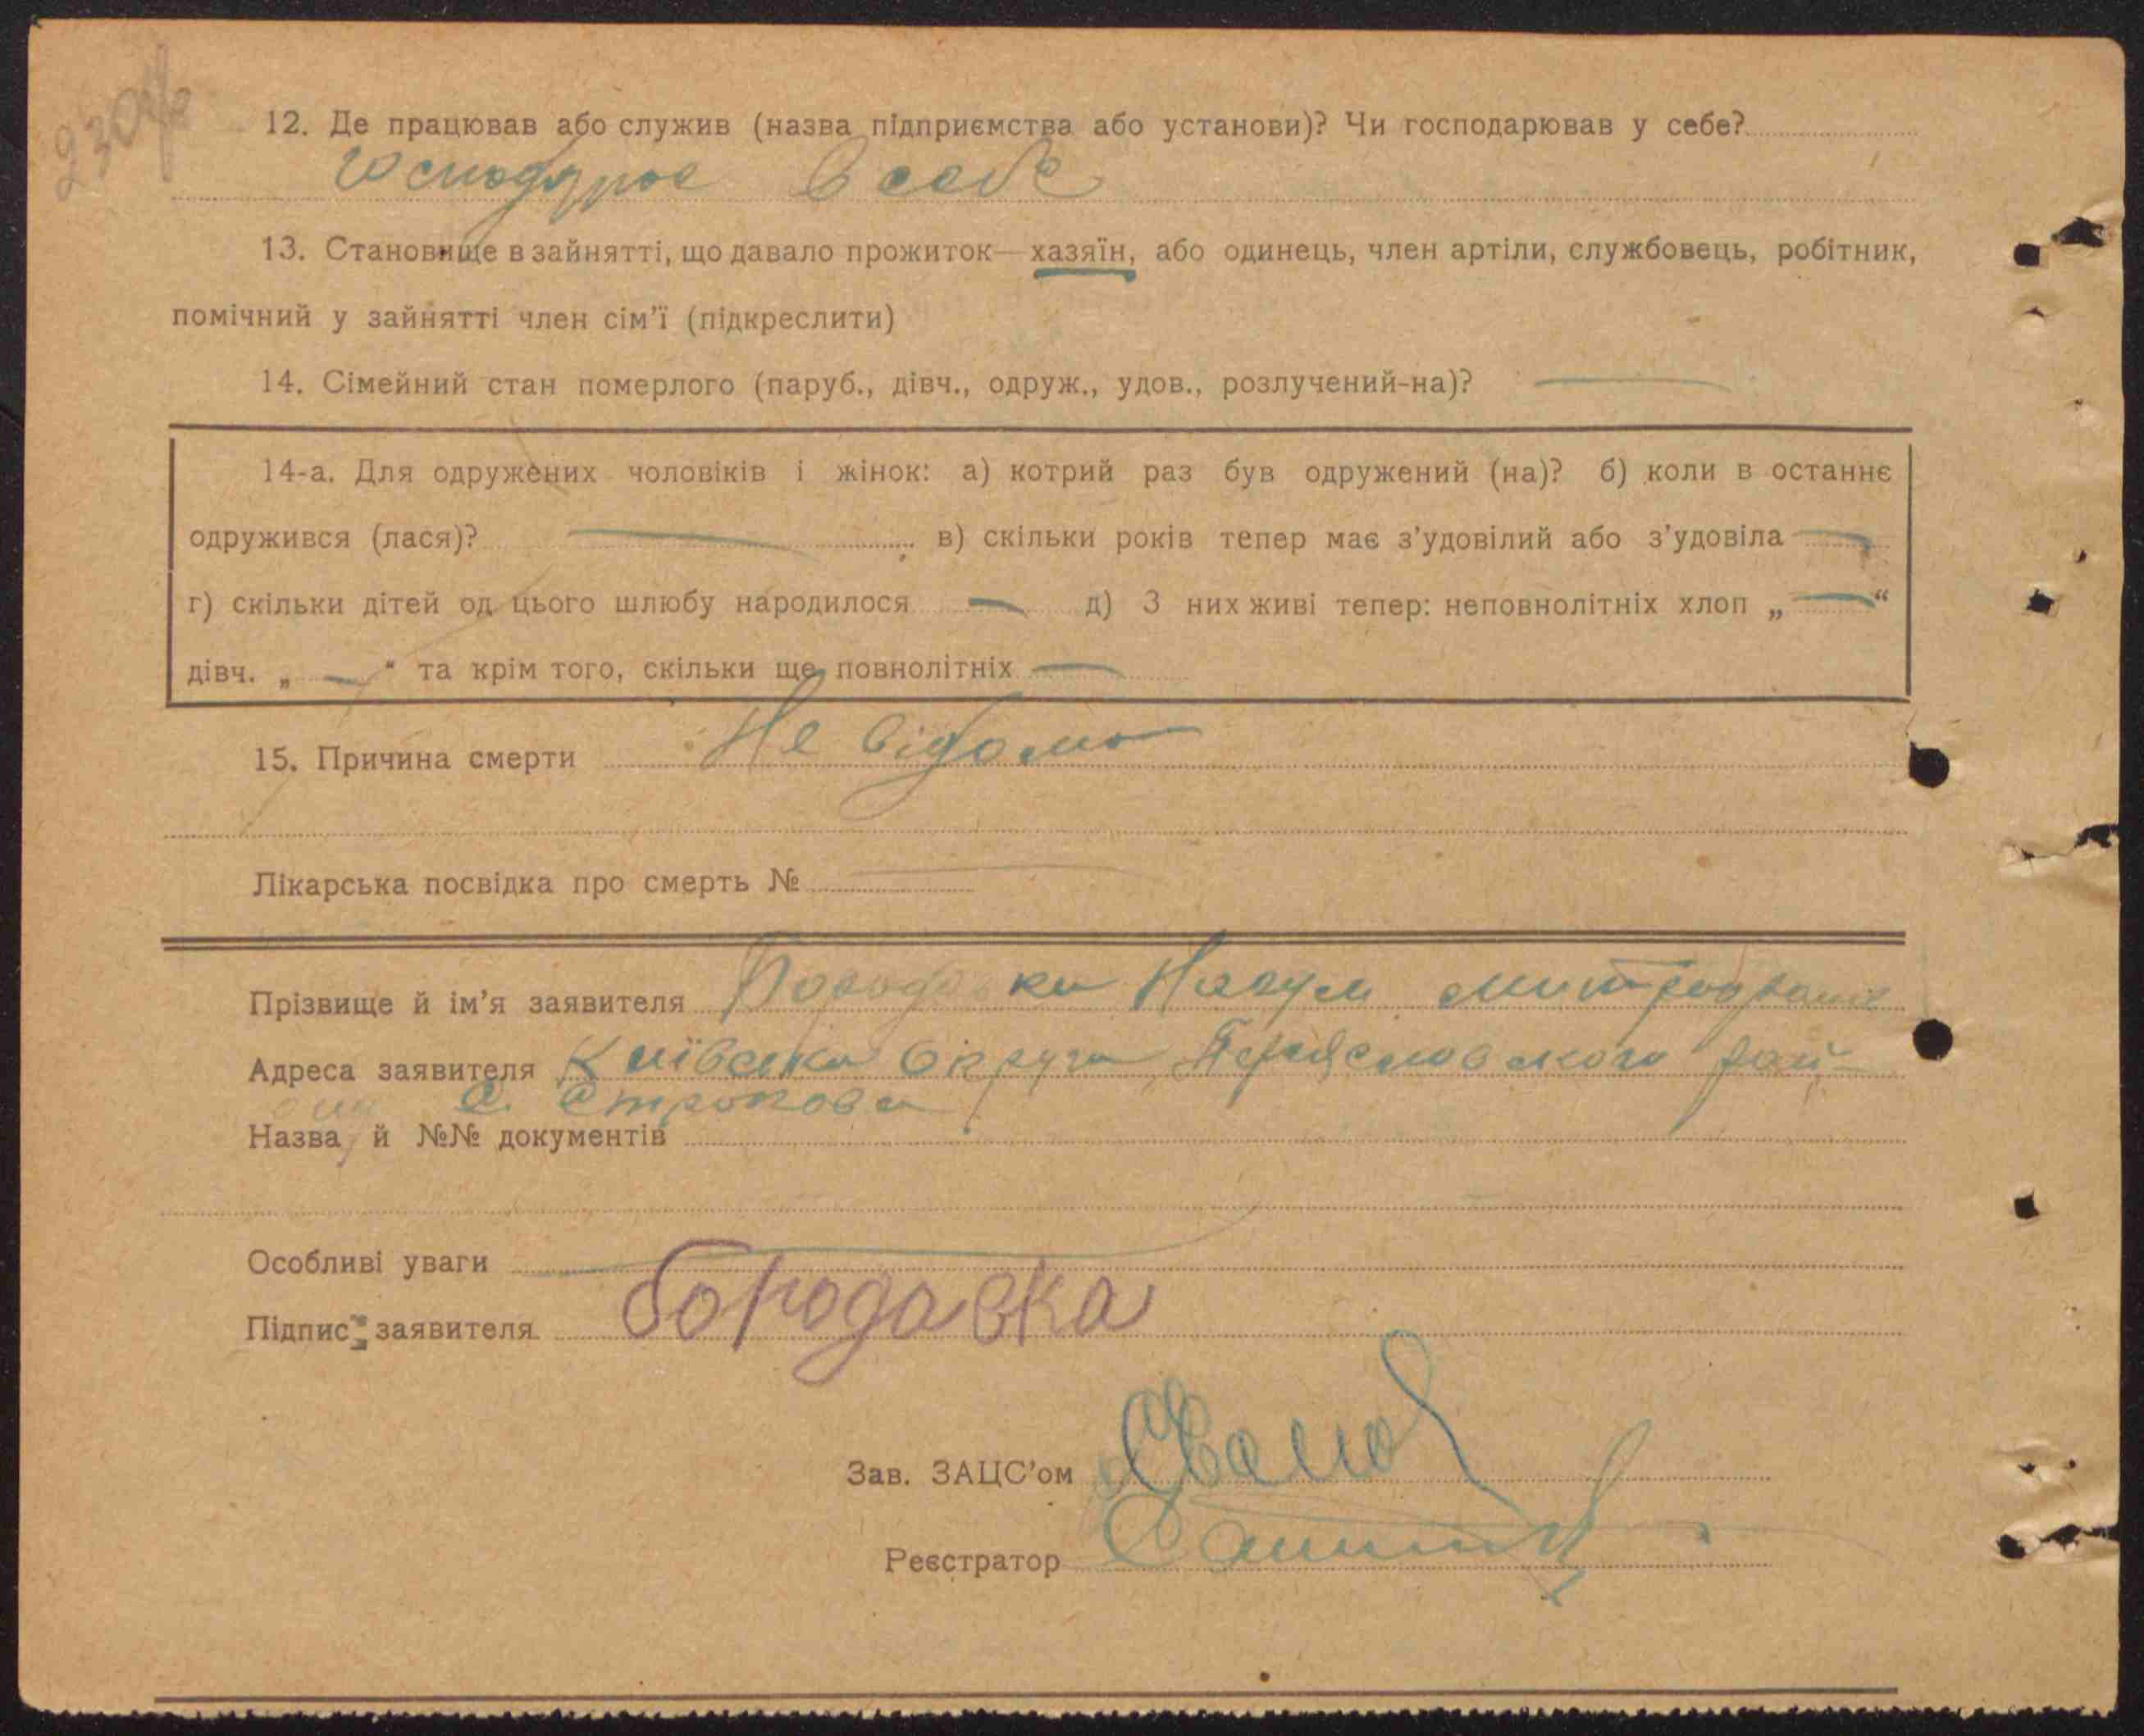 230
12. Де працював або служив (назва підприємства або установи)? Чи господарював у себе?
господарює в себе
13. Становище в зайнятті, що давало прожиток—хазяїн, або одинець, член артіли, службовець, робітник,
помічний у зайнятті член сім'ї (підкреслити)
14. Сімейний стан померлого (паруб., дівч., одруж., удов., розлучений-на)? —
14-а. Для одружених чоловіків і жінок: а) котрий раз був одружений (на)? б) коли в останнє
одружився (лася)? — в) скільки років тепер має з'удовілий або з'удовіла —
г) скільки дітей од цього шлюбу народилося — д) З них живі тепер: неповнолітніх хлоп „—“
дівч. „—“ та крім того, скільки ще повнолітніх —
15. Причина смерти Не відомо
Лікарська посвідка про смерть № —
Прізвище й ім'я заявителя Бородавка Наум
Адреса заявителя Київська округа, Переяславского рай-
она С. Строкова
Назва й №№ документів
Особливі уваги —
Підпис заявителя бородавка
Зав. ЗАЦС'ом
Реєстратор